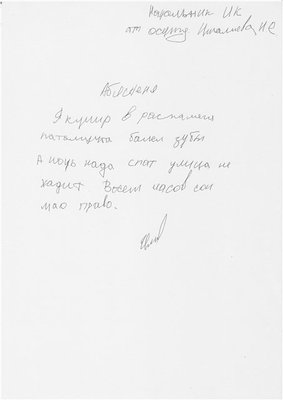 Начальник ИК
от осужде Ишалиева НС
Абяснения
Я курир в распаляга
патамушта балел зубы
А ночь нада спат улица не
хадит Восем часов сон
маю право.